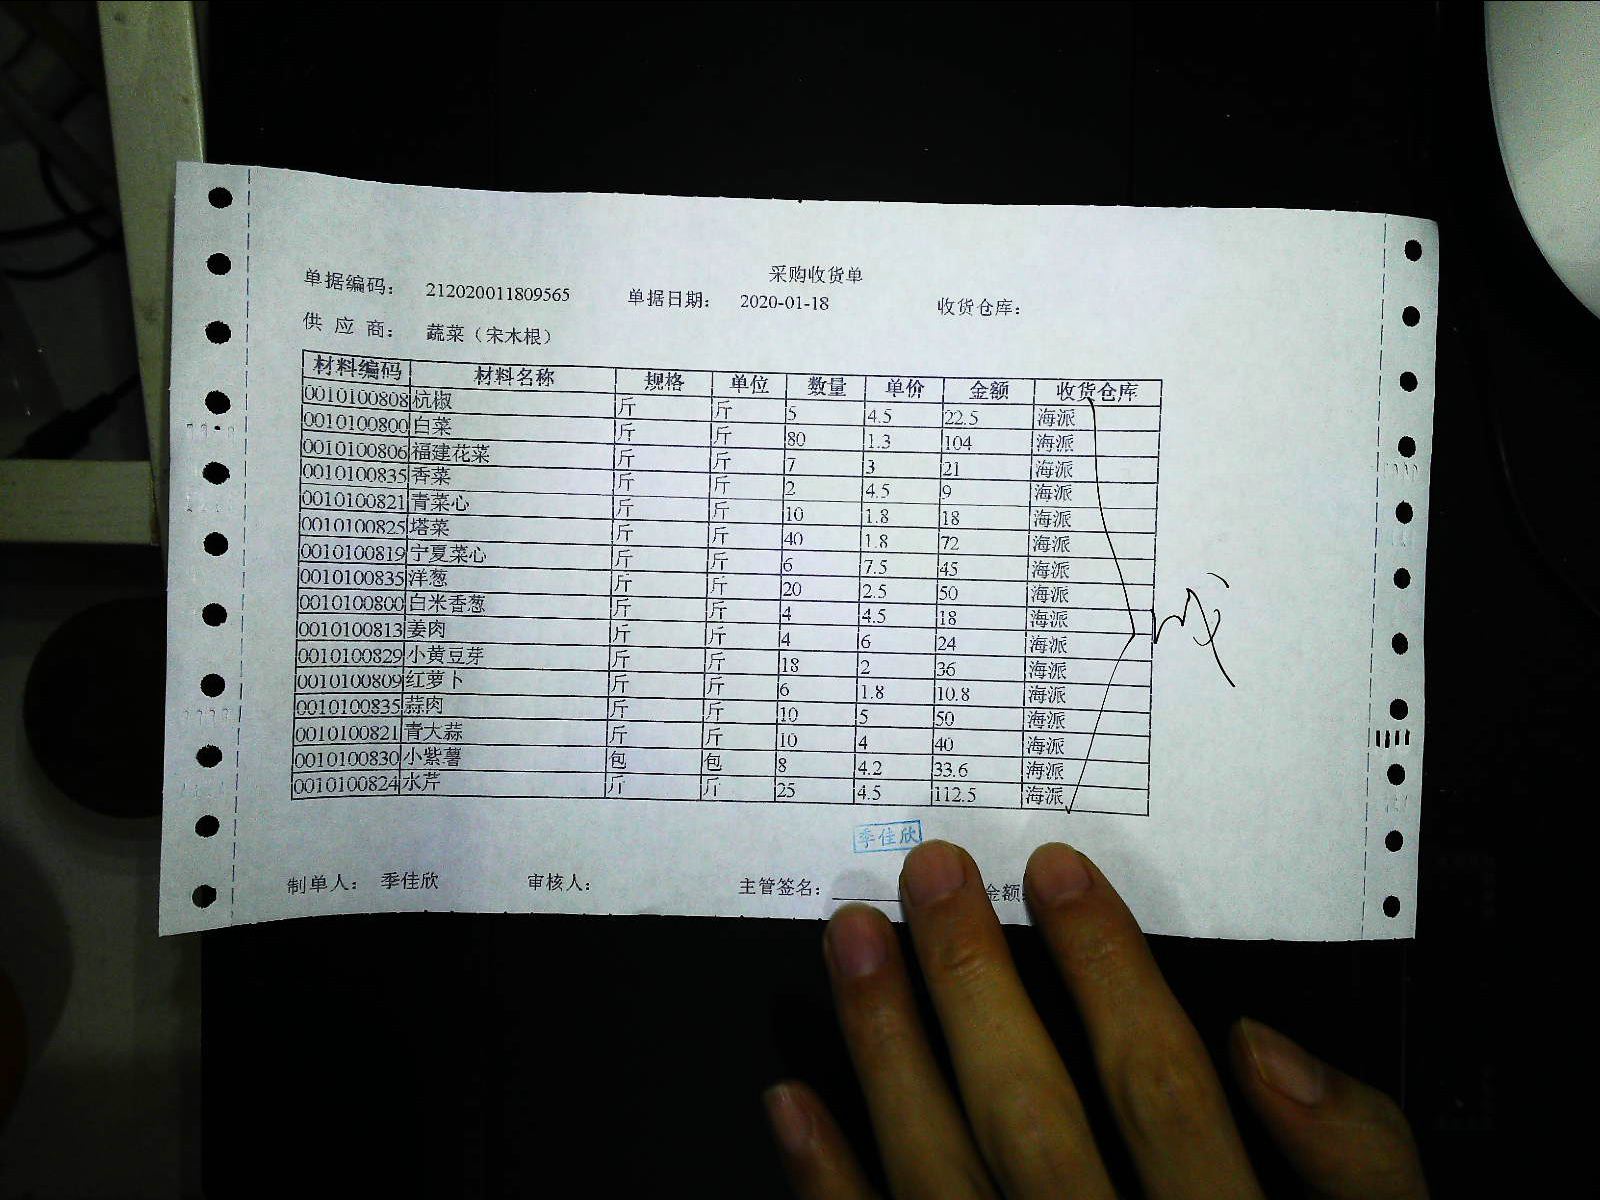 采购收货单
单据编码： 212020011809565 单据日期： 2020-01-18 收货仓库：
供 应 商： 蔬菜（宋木根）
材料编码 材料名称 规格 单位 数量 单价 金额 收货仓库
0010100808 杭椒 斤 斤 5 4.5 22.5 海派
0010100800 白菜 斤 斤 80 1.3 104 海派
0010100806 福建花菜 斤 斤 7 3 21 海派
0010100835 香菜 斤 斤 2 4.5 9 海派
0010100821 青菜心 斤 斤 10 1.8 18 海派
0010100825 塔菜 斤 斤 40 1.8 72 海派
0010100819 宁夏菜心 斤 斤 6 7.5 45 海派
0010100835 洋葱 斤 斤 20 2.5 50 海派
0010100800 白米香葱 斤 斤 4 4.5 18 海派
0010100813 姜肉 斤 斤 4 6 24 海派
0010100829 小黄豆芽 斤 斤 18 2 36 海派
0010100809 红萝卜 斤 斤 6 1.8 10.8 海派
0010100835 蒜肉 斤 斤 10 5 50 海派
0010100821 青大蒜 斤 斤 10 4 40 海派
0010100830 小紫薯 包 包 8 4.2 33.6 海派
0010100824 水芹 斤 斤 25 4.5 112.5 海派
季佳欣
制单人： 季佳欣 审核人： 主管签名： 金额